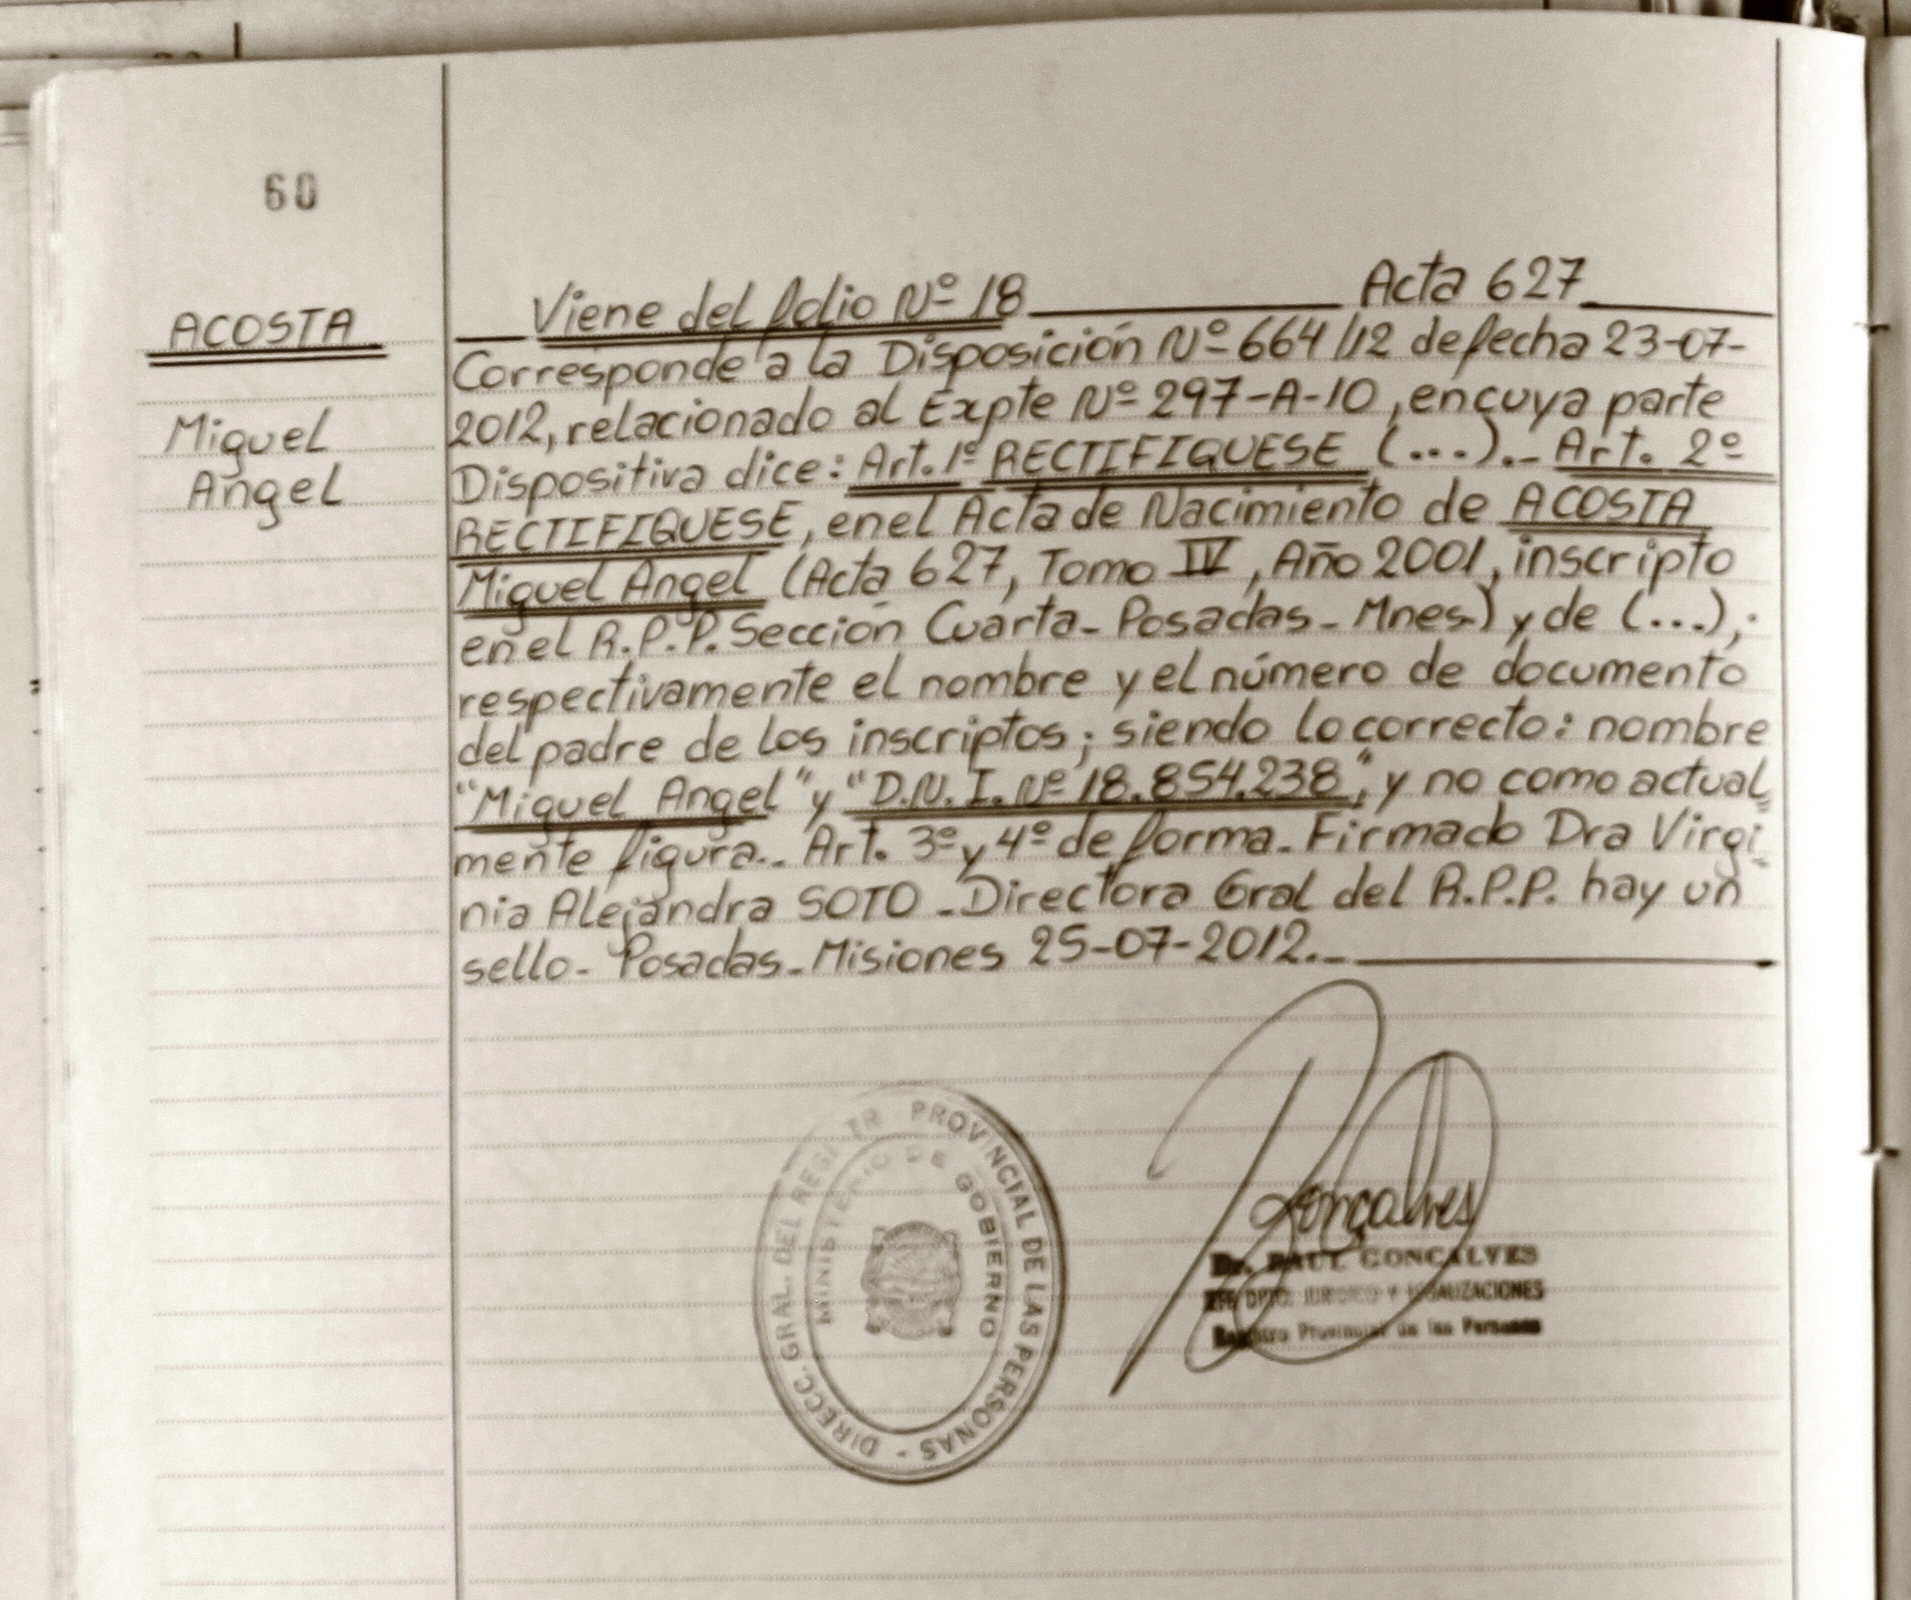 60
ACOSTA
Miguel
Angel
Viene del folio Nº 18 Acta 627
Corresponde a la Disposición Nº 664/12 de fecha 23-07-
2012, relacionado al Expte Nº 297-A-10, en cuya parte
Dispositiva dice: Art. 1º RECTIFIQUESE (...)._ Art. 2º
RECTIFIQUESE, en el Acta de Nacimiento de ACOSTA
Miguel Angel (Acta 627, Tomo IV, Año 2001, inscripto
en el R.P.P. Sección Cuarta_ Posadas_ Mnes.) y de (...);
respectivamente el nombre y el número de documento
del padre de los inscriptos; siendo lo correcto: nombre
"Miguel Angel" y "D.N.I. Nº 18.854.238", y no como actual=
mente figura._ Art. 3º y 4º de forma_ Firmado Dra Virgi=
nia Alejandra SOTO _ Directora Gral del R.P.P. hay un
sello_ Posadas_ Misiones 25-07-2012._
DIRECC. GRAL. DEL REGISTR PROVINCIAL DE LAS PERSONAS -
MINISTERIO DE GOBIERNO
Gonçalves
Dr. RAUL GONCALVES
DPTO. JURIDICO Y LEGALIZACIONES
Registro Provincial de las Personas